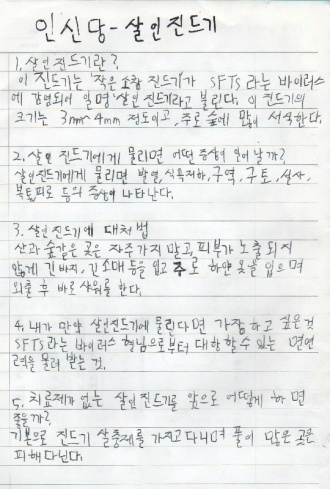 인신당-살인진드기
1. 살인진드기란?
이 진드기는 '작은소참 진드기'가 SFTS 라는 바이러스
에 감염되어 일명 '살인진드기'라고 불린다. 이 진드기의
크기는 3mm~4mm 정도이고, 주로 숲에 많이 서식한다.
2. 살인 진드기에게 물리면 어떤 증상이 일어날까?
살인진드기에게 물리면 발열, 식욕저하, 구역, 구토, 설사,
복통, 피로 등의 증상이 나타난다.
3. 살인진드기에 대처법
산과 숲같은 곳은 자주가지 말고, 피부가 노출되지
않게 긴바지, 긴소매 등을 입고 주로 하얀옷을 입으며
외출 후 바로 샤워를 한다.
4. 내가 만약 살인진드기에 물린다면 가장하고 싶은것
SFTS라는 바이러스 형님으로부터 대항할 수 있는 면연
력을 물려 받는 것.
5. 치료제가 없는 살인진드기를 앞으로 어떻게 하면
좋을까?
기본으로 진드기 살충제를 가지고다니며 풀이 많은 곳은
피해다닌다.